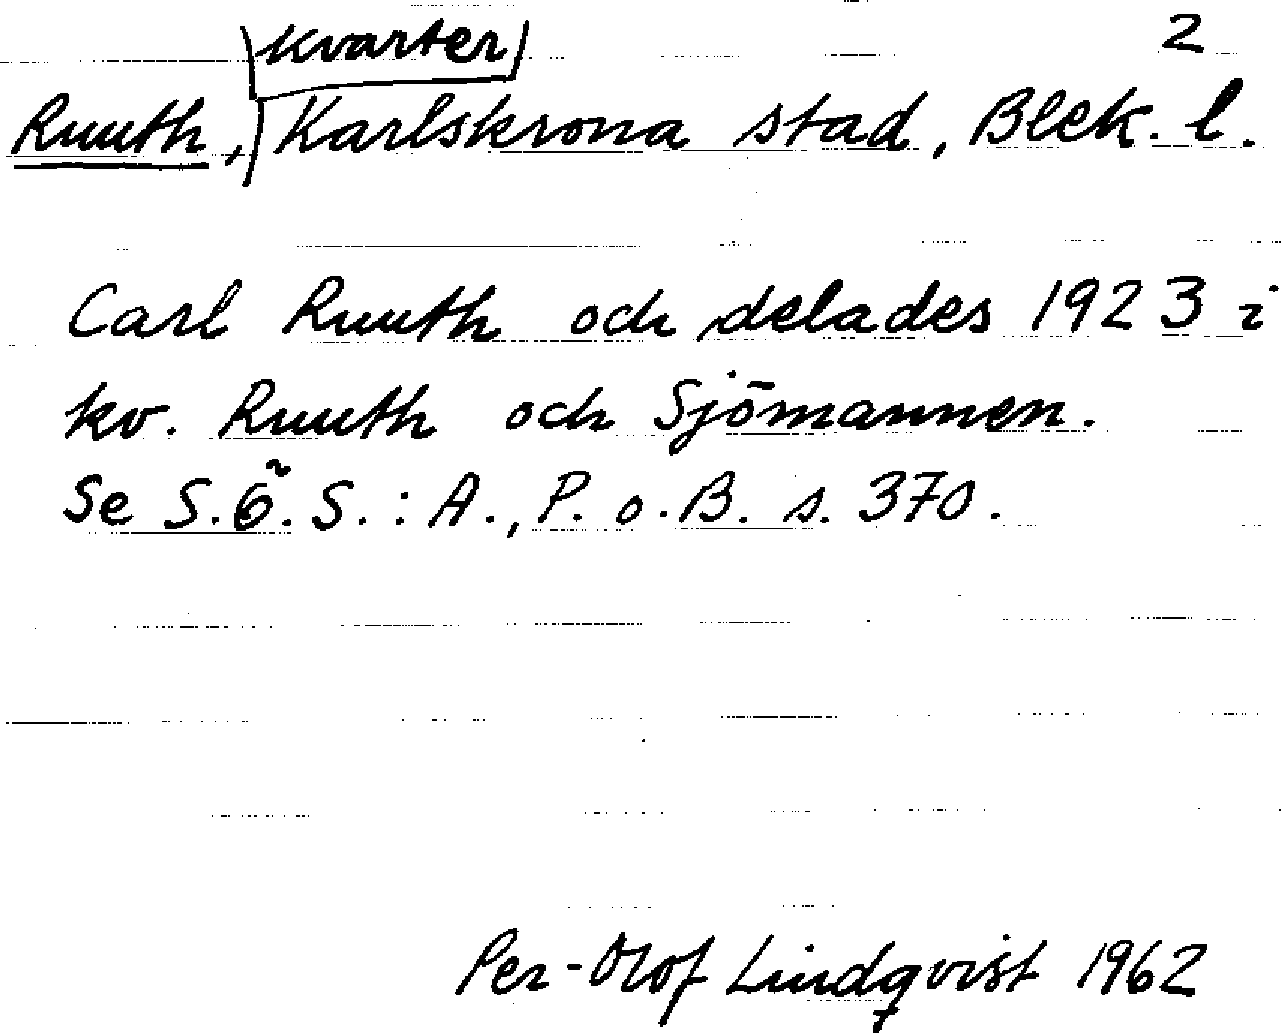 2
Ruuth, kvarter Karlskrona stad, Blek. l.
Carl Ruuth och delades 1923 i
kv. Ruuth och Sjömannen.
Se S.ö.S.: A., P. o. B. s. 370.
Per-Olof Lindqvist 1962